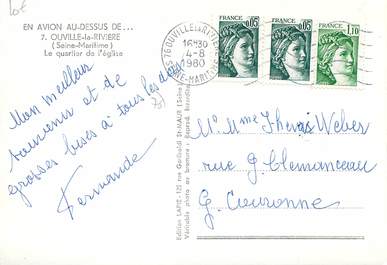 Lot
EN AVION AU-DESSUS DE...
7. OUVILLE-la-RIVIERE
(Seine-Maritime)
Le quartier de l'église
76 OUVILLE LA RIVIERE
16H30
4-8
1980
SEINE-MARITIME
FRANCE
0,05
FRANCE
0,05
FRANCE
1,10
Mon meilleur
souvenir et de
grosses bises à tous les deux
Fernande
Edition LAPIE - 125 rue Garibaldi St-MAUR (Seine)
Véritable photo au bromure - Reprod. interdite
M. Mme Weber
rue G. Clemenceau
G. Couronne